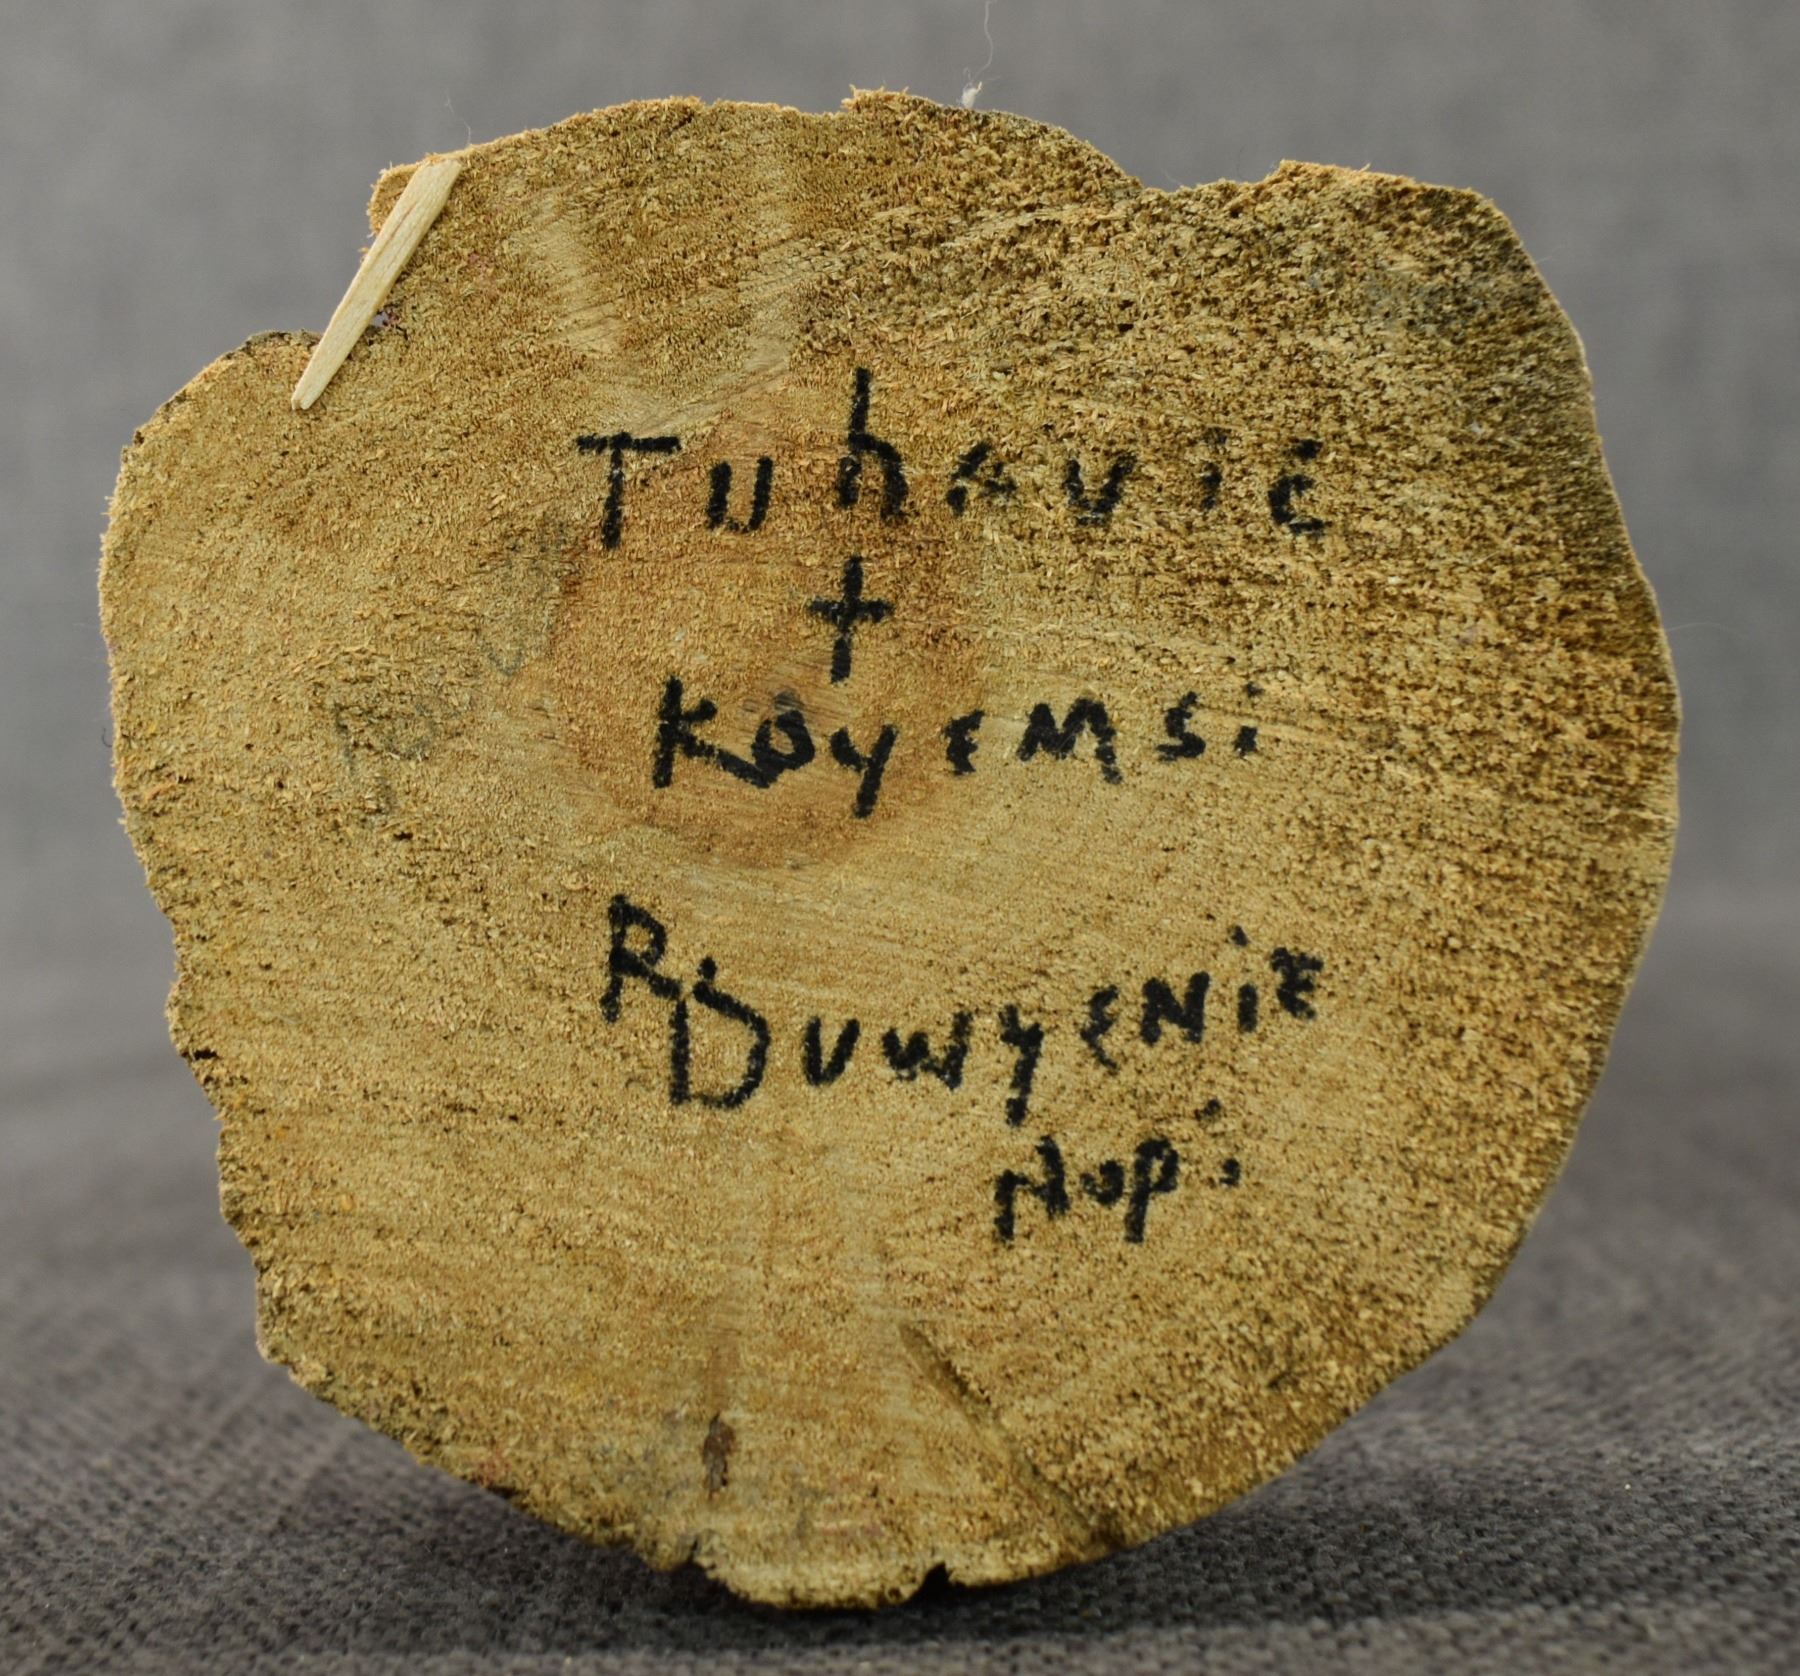 Tuhavic
+
Koyemsi
R Duwyenie
Hopi